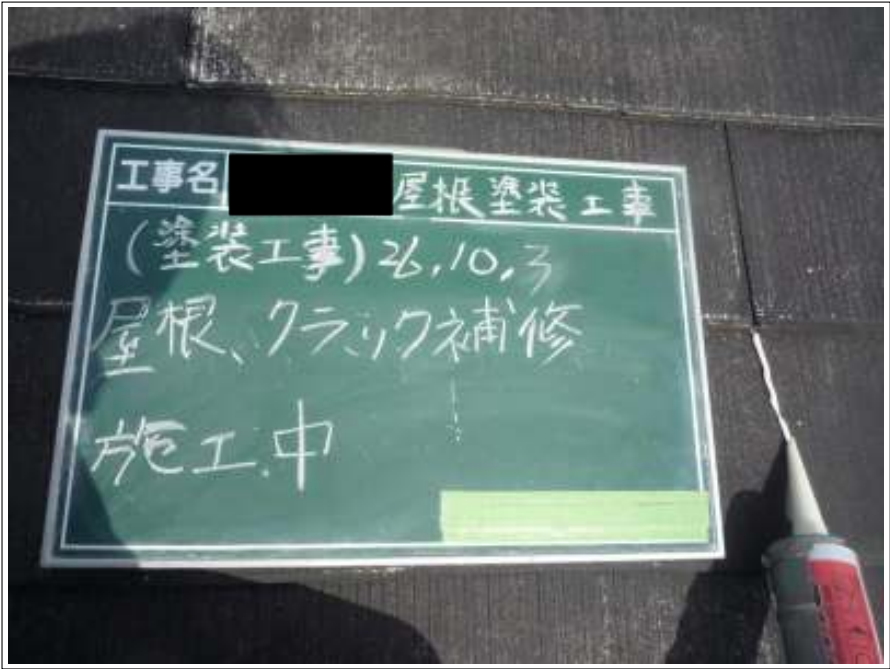 工事名 屋根塗装工事
(塗装工事) 26.10.3
屋根、クラック補修
施工中